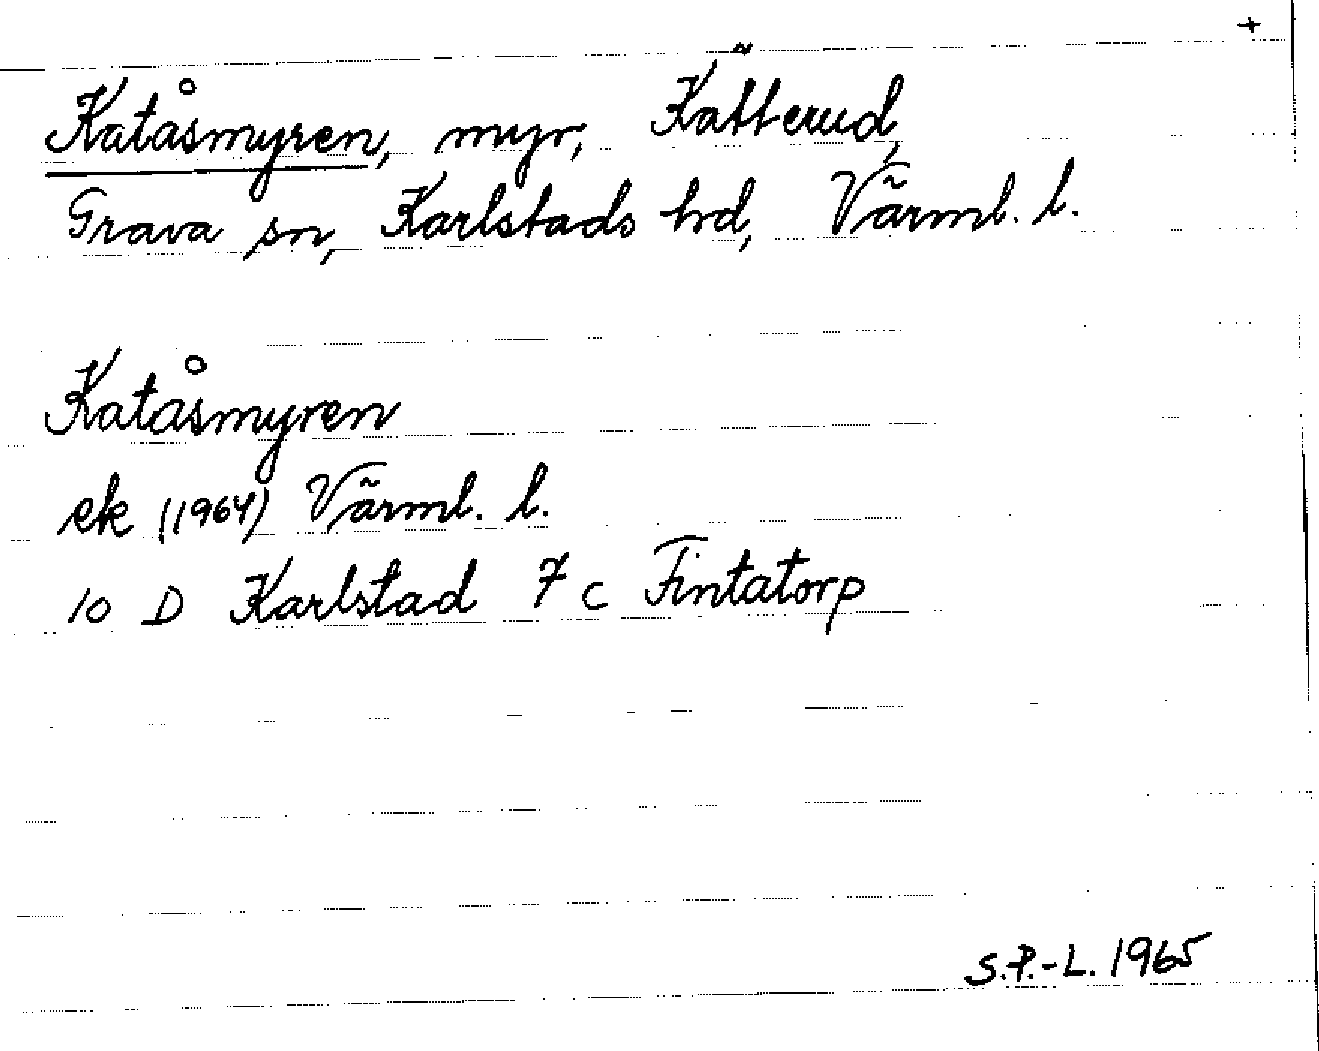 +
Katåsmyren, myr, Kätterud,
Grava sn, Karlstads hd, Värml. l.
Katåsmyren
ek (1964) Värml. l.
10 D Karlstad 7 c Fintatorp
S.P.-L. 1965